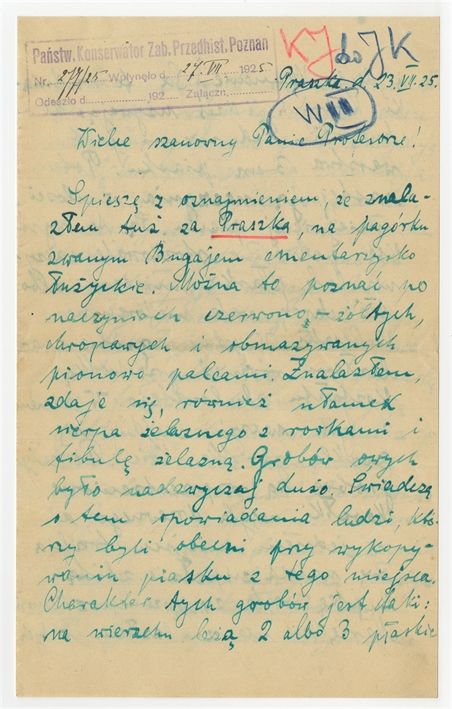 Państw. Konserwator Zab. Przedhist. Poznan
Nr. 277/25 Wpłynęło d. 27.VII. 1925.
Odeszło d. 192 Załączn.
KJ do JK
Praszka d. 23.VII.25.
W III
Wielce szanowny Panie Profesorze!
Spieszę z oznajmieniem, że znala-
złem tuż za Praszką, na pagórku
zwanym Bugajem cmentarzysko
łużyckie. Można to poznać po
naczyniach czerwono-żółtych,
chropawych i obmazywanych
pionowo palcami. Znalazłem,
zdaje się, również ułamek
sierpa żelaznego z rostkami i
fibulę żelazną. Grobów owych
było nadzwyczaj dużo. Świadczą
o tem opowiadania ludzi, któ-
rzy byli obecni przy wykopy-
waniu piasku z tego miejsca.
Charakter tych grobów jest taki:
na wierzchu leżą 2 albo 3 płaskie